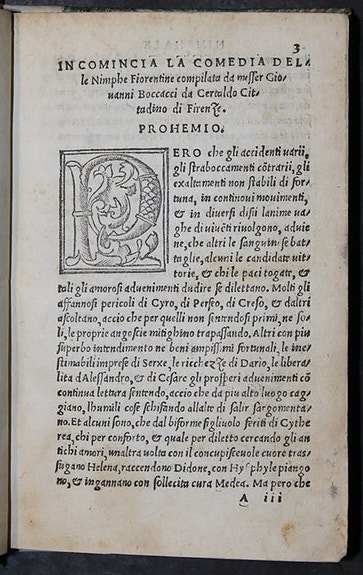 3
INCOMINCIA LA COMEDIA DEL-
le Nimphe Fiorentine compilata da messer Gio-
uanni Boccacci da Certaldo Cit-
tadino di Firenze.
PROHEMIO.
PERO che gli accidenti uarii,
gli straboccamenti cōtrarii, gli
exaltamenti non stabili di for-
tuna, in continoui mouimenti,
& in diuersi disii lanime ua-
ghe di uiuēti riuolgono, aduie
ne, che altri le sanguinose bat-
taglie, alcuni le candidate uit-
torie, & chi le paci togate, &
tali gli amorosi aduenimenti dudire se dilettano. Molti gli
affannosi pericoli di Cyro, di Perseo, di Creso, & daltri
ascoltano, accio che per quelli non sentendosi primi, ne so-
li, le proprie angoscie mitighino trapassando. Altri con piu
superbo intendimento ne beni ampissimi fortunali, le ine-
stimabili imprese di Serxe, le ricchezze di Dario, le libera-
lita dAlessandro, & di Cesare gli prosperi aduenimenti cō
continua lettura sentendo, accio che da piu alto luogo cag-
giano, lhumili cose schifando allalte di salir sargomenta-
no. Et alcuni sono, che dal biforme figliuolo feriti di Cythe
rea, chi per conforto, & quale per diletto cercando gli an
tichi amori, unaltra uolta con il concupisceuole cuore tras-
fugano Helena, raccendono Didone, con Hysiphyle piango
no, & ingannano con sollecita cura Medea. Ma pero che
A iii